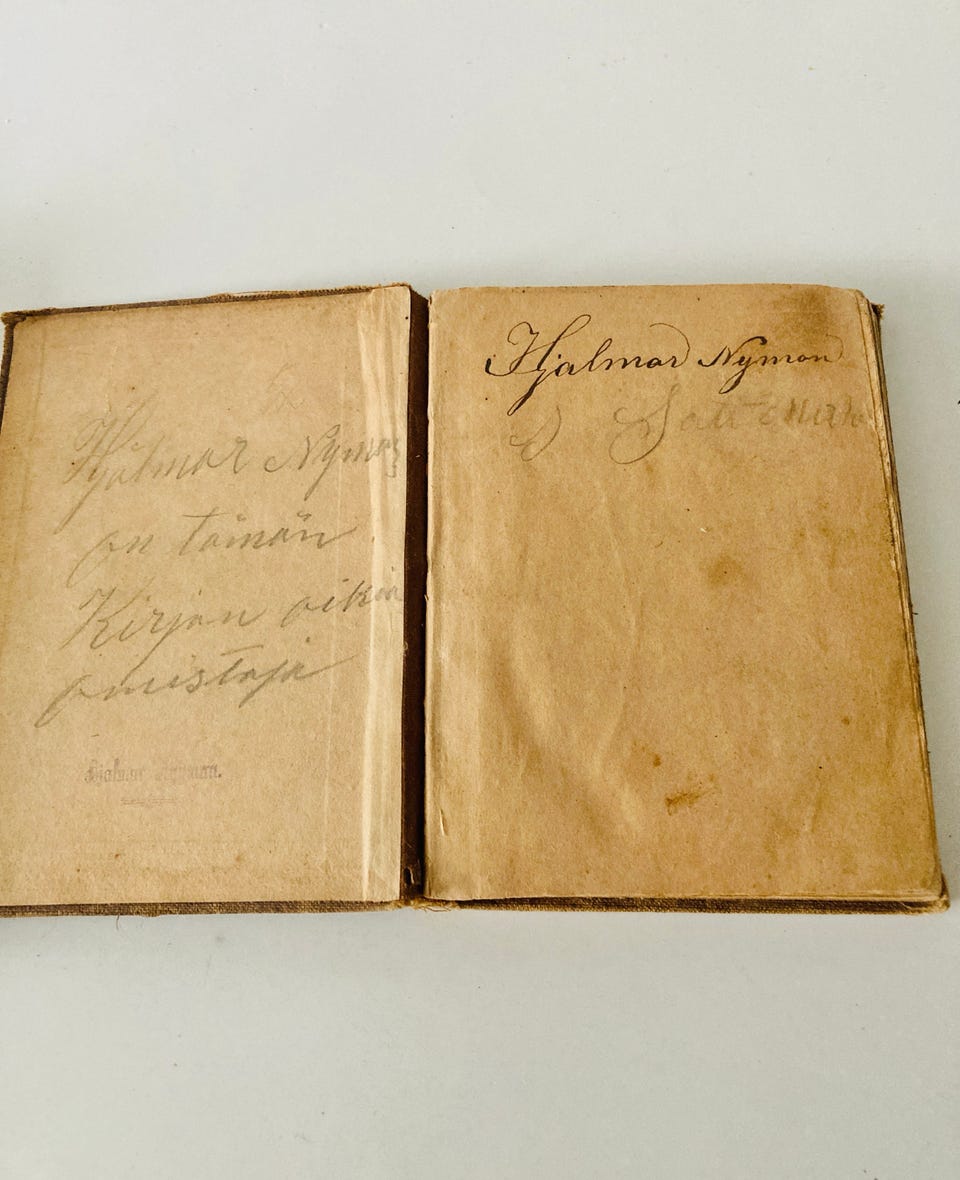 Hjalmar Nyman
on tämän
Kirjan oikia
omistaja
Hjalmar Nyman.
Hjalmar Nyman